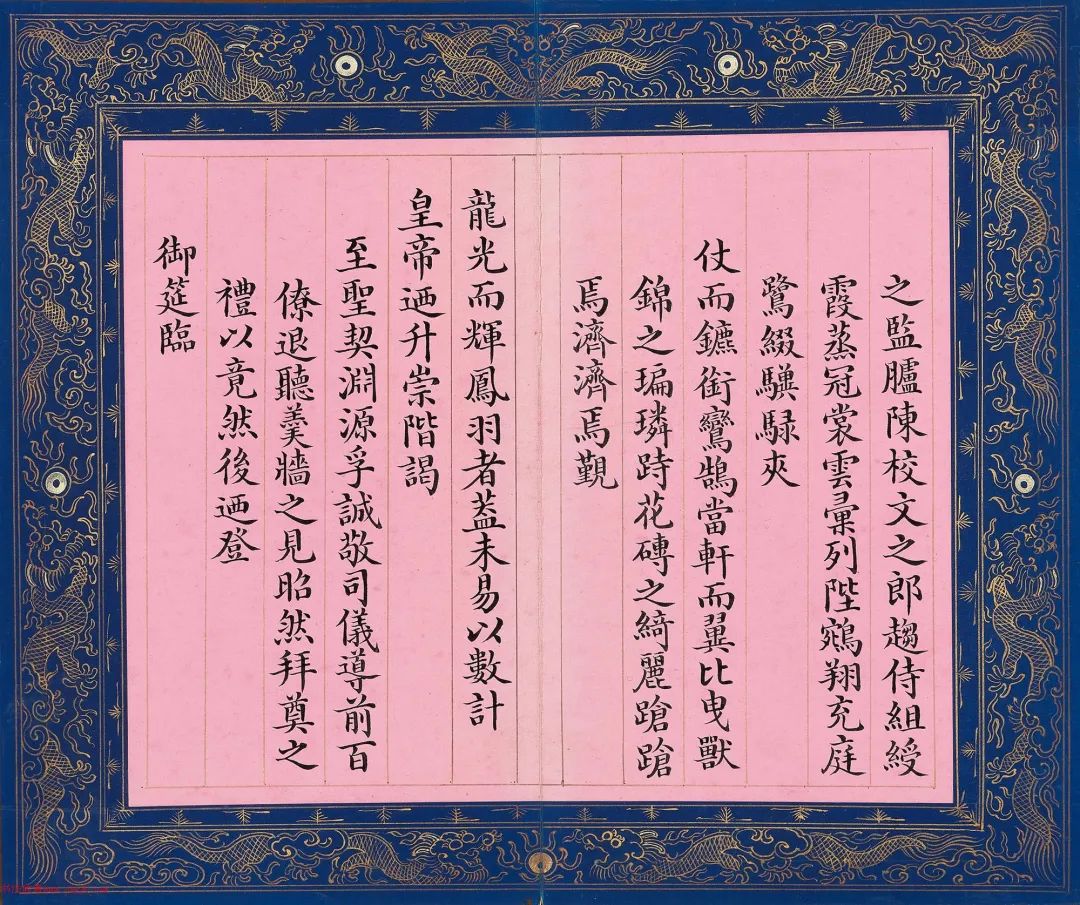 之監臚陳校文之郎趨侍組綬
霞蒸冠裳雲彙列陛鵷翔充庭
鷺綴騻騄夾
仗而鑣銜鸞鵠當軒而翼比曳獸
錦之㻞璘跱花磚之綺麗蹌蹌
焉濟濟焉覲
龍光而輝鳳羽者蓋未易以數計
皇帝迺升崇階謁
至聖契淵源孚誠敬司儀導前百
僚退聽羹牆之見昭然拜奠之
禮以竟然後迺登
御筵臨